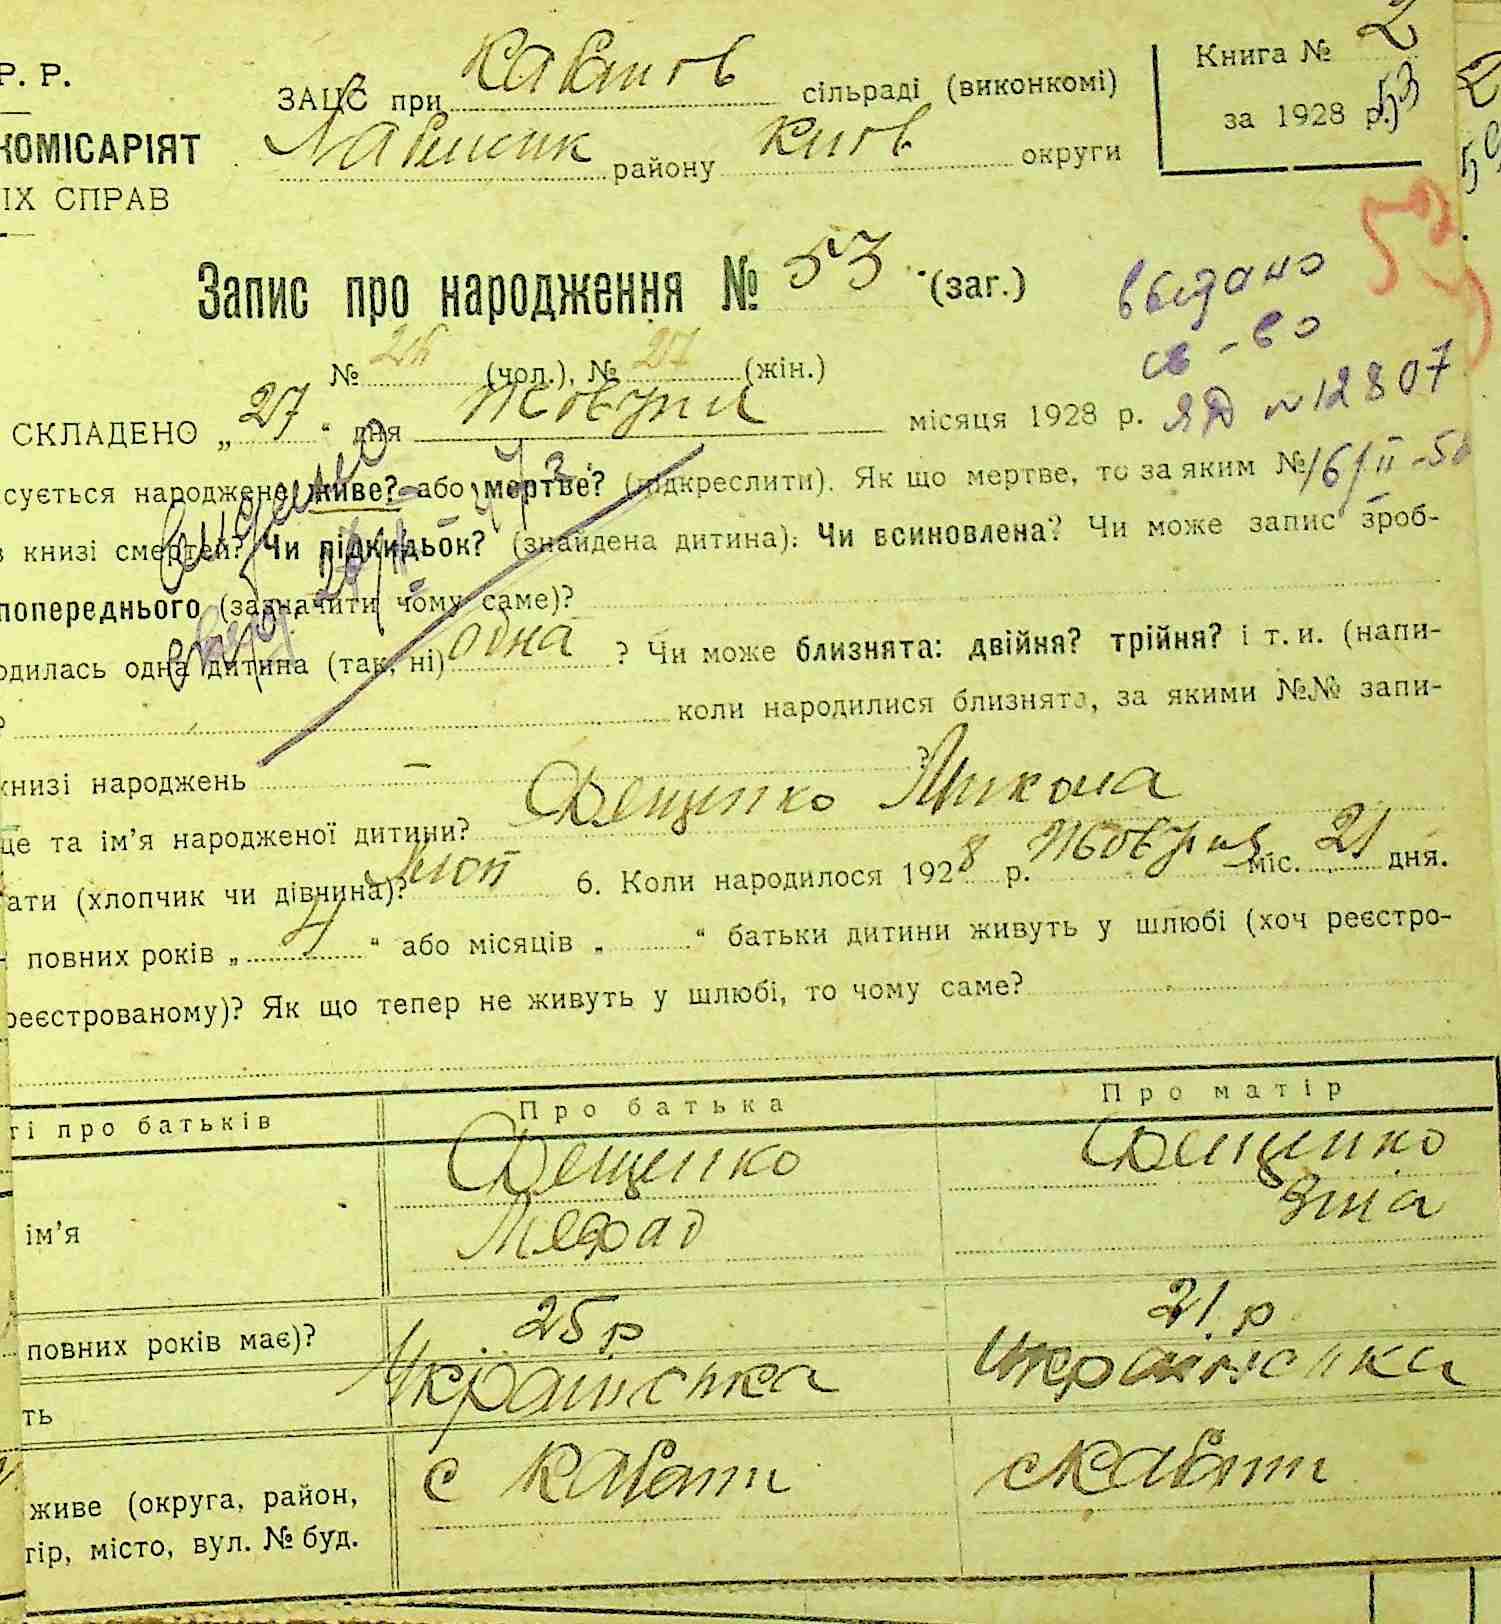 Р. Р.
Книга № 2
ЗАЦС при Кабанов сільраді (виконкомі)
за 1928 р. 53
КОМІСАРІЯТ
району Київ округи
ІХ СПРАВ
Запис про народження № 53 (заг.)
выдано
св-во
№ 26 (чол.), № 27 (жін.)
ЯД № 12807
СКЛАДЕНО „27“ дня Жовтня місяця 1928 р.
16/II-50
сується народжене живе? або мертве? (підкреслити). Як що мертве, то за яким №
в книзі смертей? Чи підкидьок? (знайдена дитина): Чи всиновлена? Чи може запис зроб-
попереднього (зазначити чому саме)?
одилась одна дитина (так, ні) одна ? Чи може близнята: двійня? трійня? і т. и. (напи-
? коли народилися близнята, за якими №№ запи-
книзі народжень — ?
ще та ім’я народженої дитини? Фещенко Микола
ати (хлопчик чи дівчина)? хлоп 6. Коли народилося 1928 р. Жовтня міс. 21 дня.
повних років „4“ або місяців „ “ батьки дитини живуть у шлюбі (хоч реєстро-
реєстрованому)? Як що тепер не живуть у шлюбі, то чому саме?
ті про батьків Про батька Про матір
Фещенко Фещенко
ім’я Зіна
повних років має)? 25 р 21 р
ть Українська Українська
с Кабани с Кабани
живе (округа, район,
тір, місто, вул. № буд.